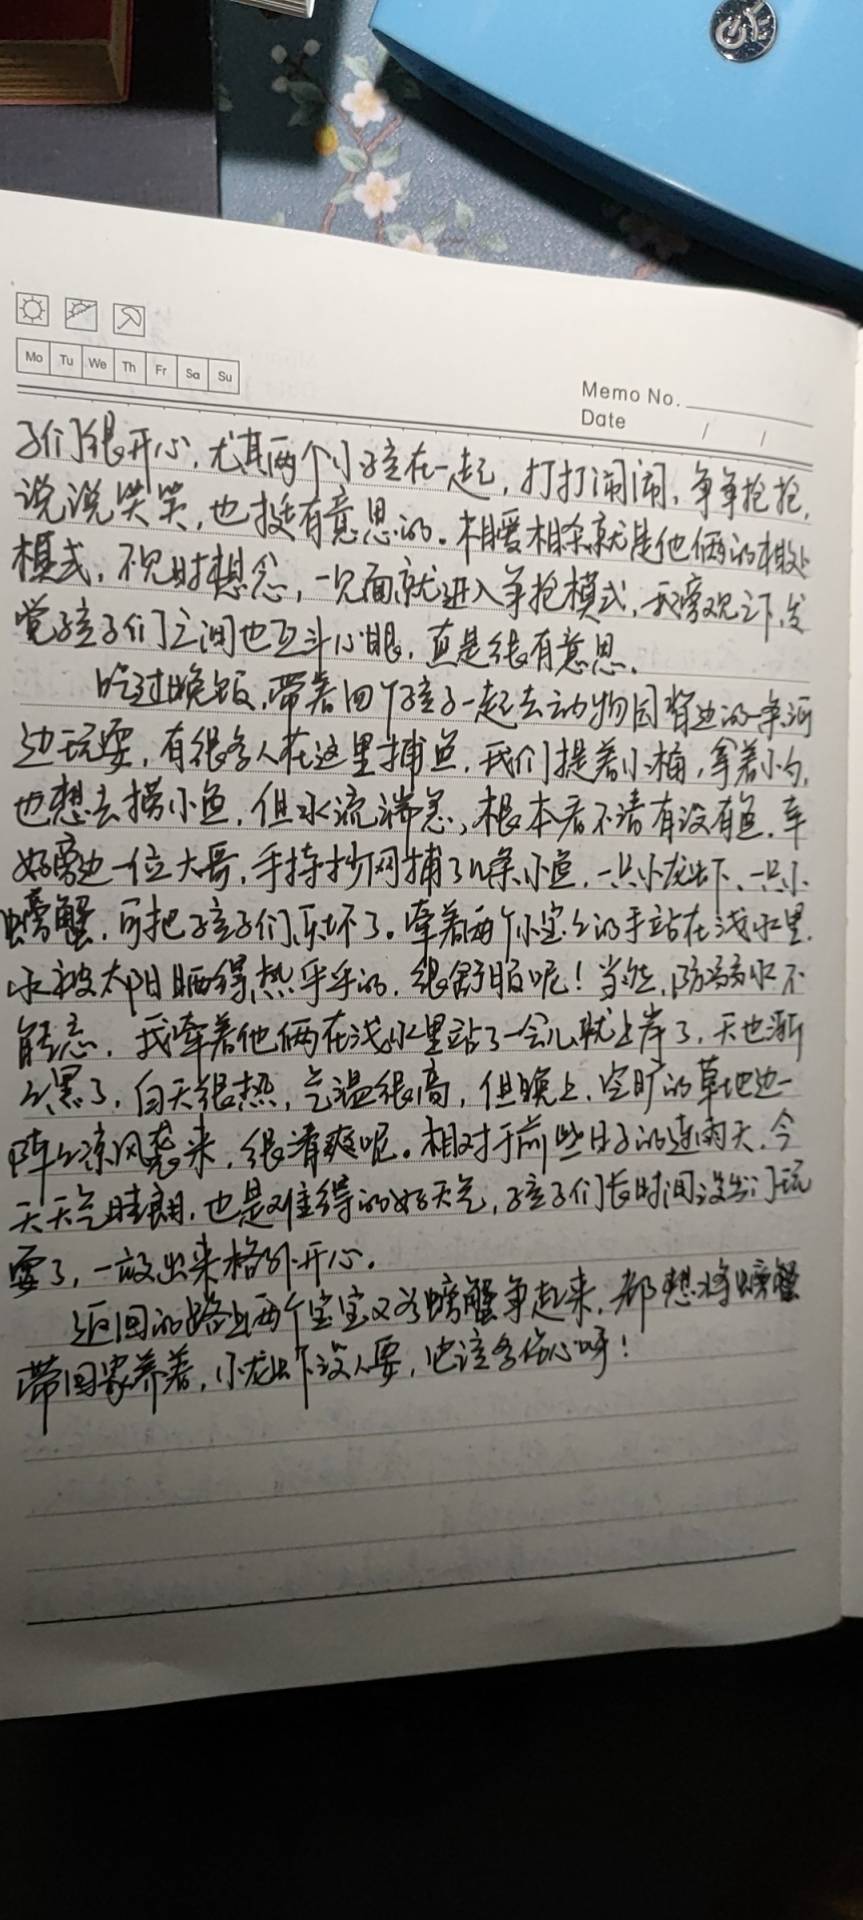 Mo Tu We Th Fr Sa Su
Memo No.
Date / /
子们很开心,尤其两个小孩在一起,打打闹闹、争争抢抢,
说说笑笑,也挺有意思的。相爱相杀就是他俩的相处
模式,不见时想念,一见面就进入争抢模式,我旁观之下,发
觉孩子们之间也互斗心眼,真是很有意思。
吃过晚饭,带着四个孩子一起去动物园背边的一条河
边玩耍,有很多人在这里捕鱼,我们提着小桶,拿着小勺,
也想去捞小鱼,但水流湍急,根本看不清有没有鱼,幸
好旁边一位大哥,手持抄网捕了几条小鱼,一只小龙虾、一只小
螃蟹,可把孩子们乐坏了。牵着两个小宝々的手站在浅水里,
水被太阳晒得热乎乎的,很舒服呢!当然,防溺水不
能忘,我牵着他俩在浅水里站了一会儿就上岸了,天也渐
々黑了,白天很热,气温很高,但晚上,空旷的草地边一
阵々凉风袭来,很清爽呢。相对于前些日子的连雨天,今
天天气晴朗,也是难得的好天气,孩子们长时间没出门玩
耍了,一放出来格外开心。
返回的路上两个宝宝又为螃蟹争起来,都想将螃蟹
带回家养着,小龙虾没人要,它该多伤心呀!